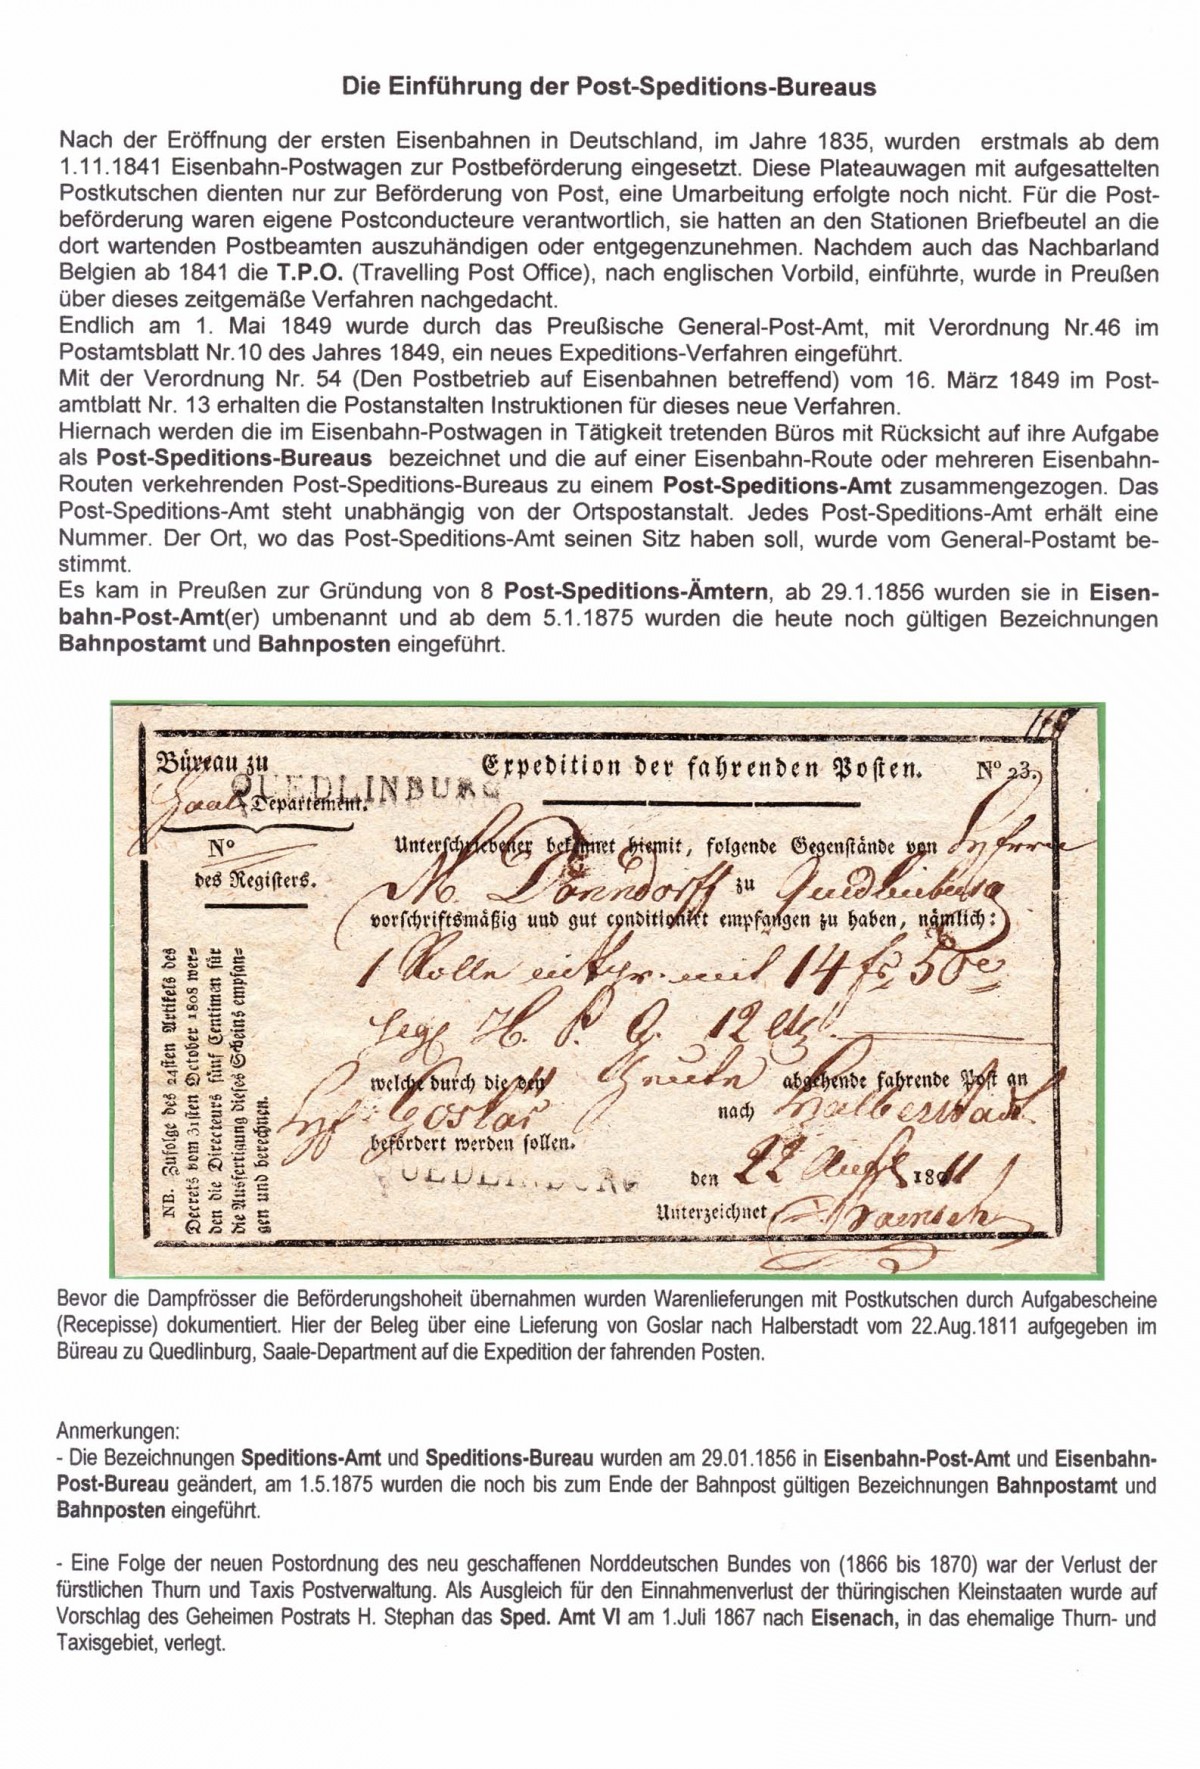 Die Einführung der Post-Speditions-Bureaus
Nach der Eröffnung der ersten Eisenbahnen in Deutschland, im Jahre 1835, wurden erstmals ab dem
1.11.1841 Eisenbahn-Postwagen zur Postbeförderung eingesetzt. Diese Plateauwagen mit aufgesattelten
Postkutschen dienten nur zur Beförderung von Post, eine Umarbeitung erfolgte noch nicht. Für die Post-
beförderung waren eigene Postconducteure verantwortlich, sie hatten an den Stationen Briefbeutel an die
dort wartenden Postbeamten auszuhändigen oder entgegenzunehmen. Nachdem auch das Nachbarland
Belgien ab 1841 die T.P.O. (Travelling Post Office), nach englischen Vorbild, einführte, wurde in Preußen
über dieses zeitgemäße Verfahren nachgedacht.
Endlich am 1. Mai 1849 wurde durch das Preußische General-Post-Amt, mit Verordnung Nr.46 im
Postamtsblatt Nr.10 des Jahres 1849, ein neues Expeditions-Verfahren eingeführt.
Mit der Verordnung Nr. 54 (Den Postbetrieb auf Eisenbahnen betreffend) vom 16. März 1849 im Post-
amtblatt Nr. 13 erhalten die Postanstalten Instruktionen für dieses neue Verfahren.
Hiernach werden die im Eisenbahn-Postwagen in Tätigkeit tretenden Büros mit Rücksicht auf ihre Aufgabe
als Post-Speditions-Bureaus bezeichnet und die auf einer Eisenbahn-Route oder mehreren Eisenbahn-
Routen verkehrenden Post-Speditions-Bureaus zu einem Post-Speditions-Amt zusammengezogen. Das
Post-Speditions-Amt steht unabhängig von der Ortspostanstalt. Jedes Post-Speditions-Amt erhält eine
Nummer. Der Ort, wo das Post-Speditions-Amt seinen Sitz haben soll, wurde vom General-Postamt be-
stimmt.
Es kam in Preußen zur Gründung von 8 Post-Speditions-Ämtern, ab 29.1.1856 wurden sie in Eisen-
bahn-Post-Amt(er) umbenannt und ab dem 5.1.1875 wurden die heute noch gültigen Bezeichnungen
Bahnpostamt und Bahnposten eingeführt.
Büreau zu
QUEDLINBURG
Saal Departement.
Expedition der fahrenden Posten.
No 23.
No
des Registers.
Unterschriebener bekennet hiemit, folgende Gegenstände von
M. Donndorff zu Quedlinburg
vorschriftsmäßig und gut conditionirt empfangen zu haben, nämlich:
1 Rolle mit 14 fr 50 c
H. P. G. 12
welche durch die den heute abgehende fahrende Post an
Goslar nach Halberstadt
befördert werden sollen.
QUEDLINBURG
den 22 Aug 1811
Unterzeichnet
NB. Zufolge des 24sten Artikels des
Decrets vom 31sten October 1808 wer-
den die Directeurs fünf Centimen für
die Ausfertigung dieses Scheins empfan-
gen und berechnen.
Bevor die Dampfrösser die Beförderungshoheit übernahmen wurden Warenlieferungen mit Postkutschen durch Aufgabescheine
(Recepisse) dokumentiert. Hier der Beleg über eine Lieferung von Goslar nach Halberstadt vom 22.Aug.1811 aufgegeben im
Büreau zu Quedlinburg, Saale-Department auf die Expedition der fahrenden Posten.
Anmerkungen:
- Die Bezeichnungen Speditions-Amt und Speditions-Bureau wurden am 29.01.1856 in Eisenbahn-Post-Amt und Eisenbahn-
Post-Bureau geändert, am 1.5.1875 wurden die noch bis zum Ende der Bahnpost gültigen Bezeichnungen Bahnpostamt und
Bahnposten eingeführt.
- Eine Folge der neuen Postordnung des neu geschaffenen Norddeutschen Bundes von (1866 bis 1870) war der Verlust der
fürstlichen Thurn und Taxis Postverwaltung. Als Ausgleich für den Einnahmenverlust der thüringischen Kleinstaaten wurde auf
Vorschlag des Geheimen Postrats H. Stephan das Sped. Amt VI am 1.Juli 1867 nach Eisenach, in das ehemalige Thurn- und
Taxisgebiet, verlegt.